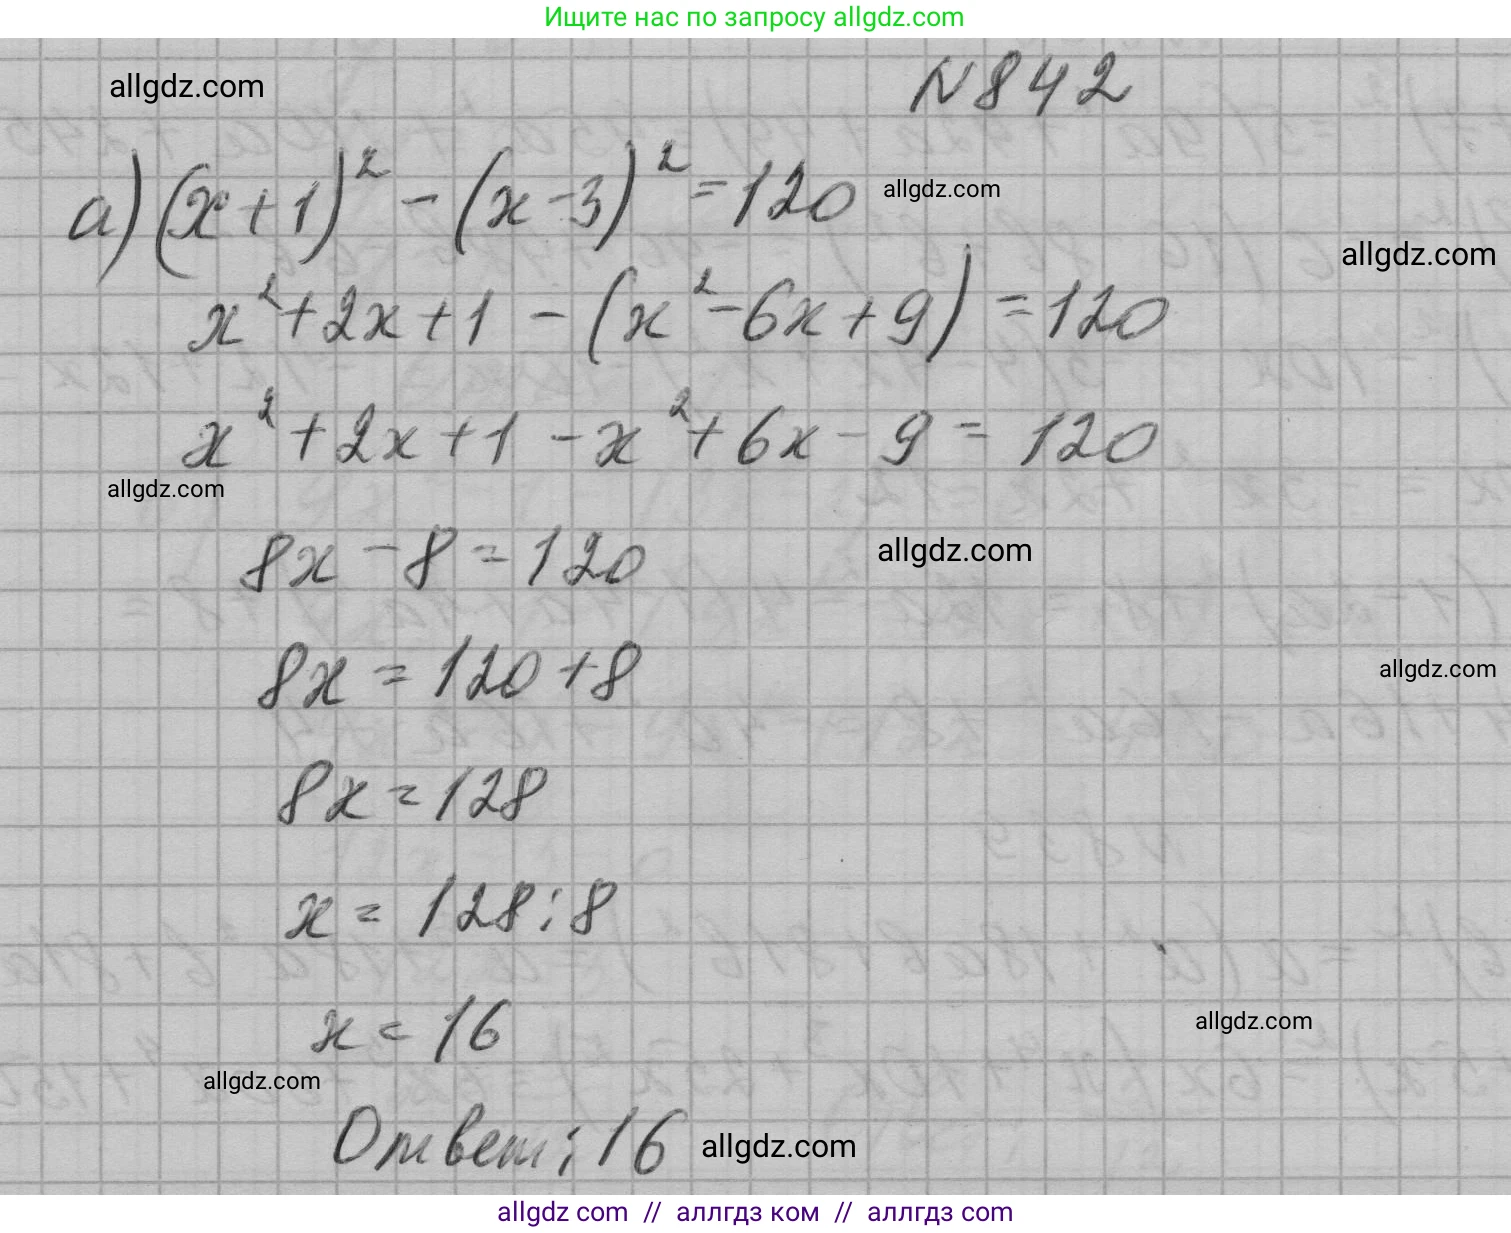 Ищите нас по запросу allgdz.com
allgdz.com
N842
а) (x+1)² - (x-3)² = 120
allgdz.com
allgdz.com
x² + 2x + 1 - (x² - 6x + 9) = 120
x² + 2x + 1 - x² + 6x - 9 = 120
allgdz.com
8x - 8 = 120
allgdz.com
8x = 120 + 8
allgdz.com
8x = 128
x = 128 : 8
x = 16
allgdz.com
allgdz.com
Ответ: 16
allgdz.com
allgdz com // аллгдз ком // аллгдз com